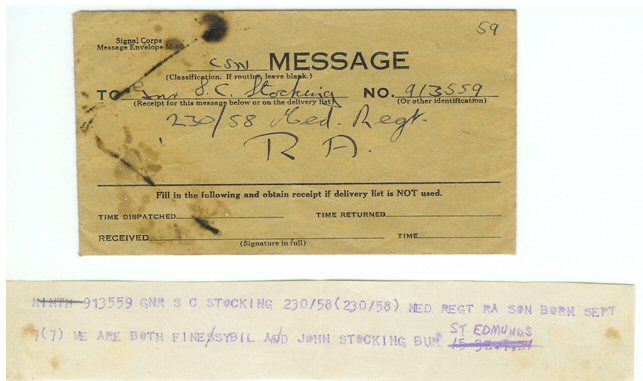 59
Signal Corps
Message Envelope M-40
CSN MESSAGE
(Classification. If routine, leave blank.)
TO Gnr S. C. Stocking NO. 913559
(Receipt for this message below or on the delivery list) (Or other identification)
230/58 Med. Regt.
R A.
Fill in the following and obtain receipt if delivery list is NOT used.
TIME DISPATCHED TIME RETURNED
RECEIVED TIME
(Signature in full)
NINTH 913559 GNR S C STOCKING 230/58(230/58) MED REGT RA SON BORN SEPT
7(7) WE ARE BOTH FINE/SYBIL AND JOHN STOCKING BUR ST EDMUNDS